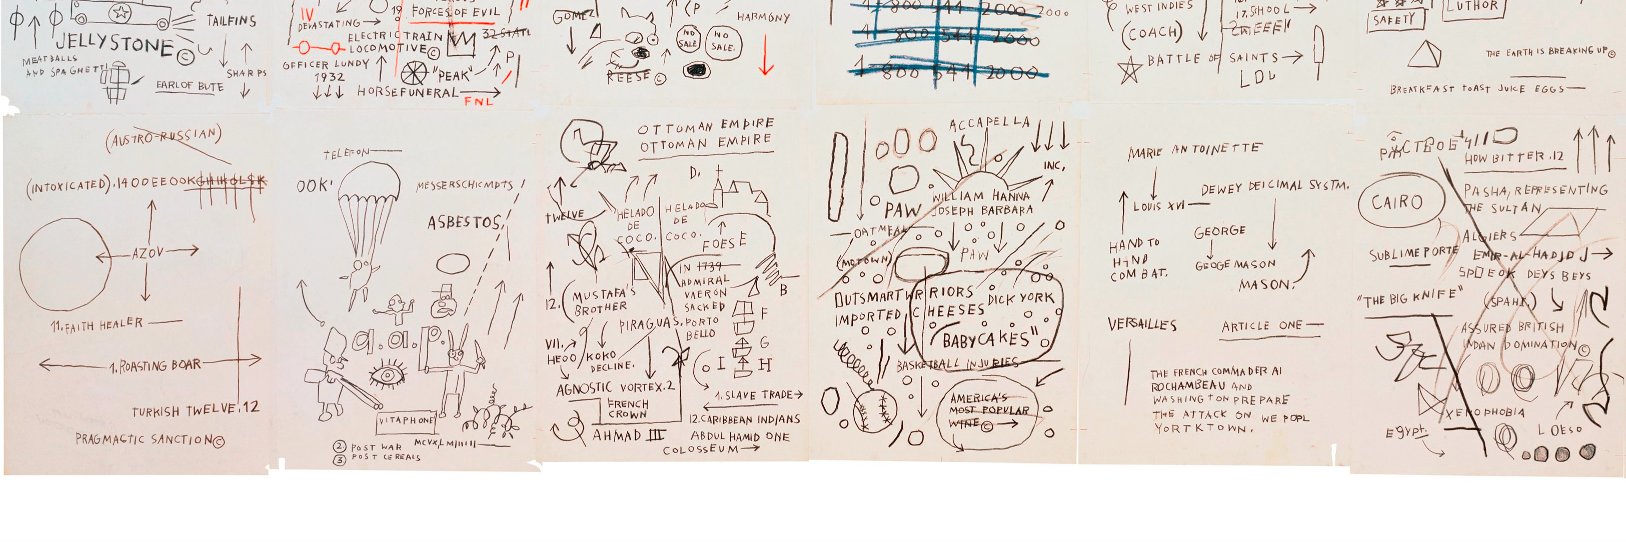 TAILFINS
JELLYSTONE©
MEATBALLS
AND SPAGHETTI
SHARPS
EARL OF BUTE
IV
19
FORCES OF EVIL
DEVASTATING
ELECTRIC TRAIN
LOCOMOTIVE©
OFFICER LUNDY
1932
"PEAK"
P
HORSEFUNERAL
FNL
GOMEZ
(P
HARMONY
NO
SALE
NO
SALE.
REESE©
2000
800 544 2000
800 544 2000
WEST INDIES
(COACH)
BATTLE OF SAINTS
LDU
SAFETY
LUTHOR
THE EARTH IS BREAKING UP©
BREAKFEAST TOAST JUICE EGGS
(AUSTRO-RUSSIAN)
(INTOXICATED).
AZOV
11. FAITH HEALER
1. ROASTING BOAR
TURKISH TWELVE.12
PRAGMACTIC SANCTION©
TELEFON
OOK'
MESSERSCHICMDTS
ASBESTOS
VITAPHONE
② POST WAR
③ POST CEREALS
OTTOMAN EMPIRE
OTTOMAN EMPIRE
D,
TWELVE
HELADO
DE
COCO.
HELADO
DE
COCO.
FOESE
IN 1739
ADMIRAL
VAERON
SACKED
PORTO
BELLO
B
12. (MUSTAFA'S
BROTHER
PIRAGUAS.
F
G
H
I
VII.
HEOO
KOKO
DECLINE.
AGNOSTIC VORTEX.2
FRENCH
CROWN
1. SLAVE TRADE
12.CARIBBEAN INDIANS
AHMAD III
ABDUL HAMID ONE
COLOSSEUM
ACCAPELLA
INC,
WILLIAM HANNA
JOSEPH BARBARA
PAW
OATMEAL
(MOTOWN)
PAW
OUTSMART WRRIORS
IMPORTED, CHEESES
DICK YORK
"BABYCAKES"
BASKETBALL INJURIES
AMERICA'S
MOST POPULAR
WINE©
MARIE ANTOINETTE
DEWEY DEICIMAL SYSTM.
LOUIS XVI
GEORGE
HAND TO
HAND
COMBAT.
GEOGE MASON
MASON
VERSAILLES
ARTICLE ONE
THE FRENCH COMMADER AI
ROCHAMBEAU AND
WASHINGTON PREPARE
THE ATTACK ON WE POPL
YORTKTOWN.
HOW BITTER .12
PASHA, REPRESENTING
THE SULTAN
CAIRO
ALGIERS
SUBLIME PORTE
EMIR-AL-HADJDJ
DEYS BEYS
"THE BIG KNIFE"
(SPAHI.)
ASSURED BRITISH
INDIAN DOMINATION©
XENOPHOBIA
EGYPT.